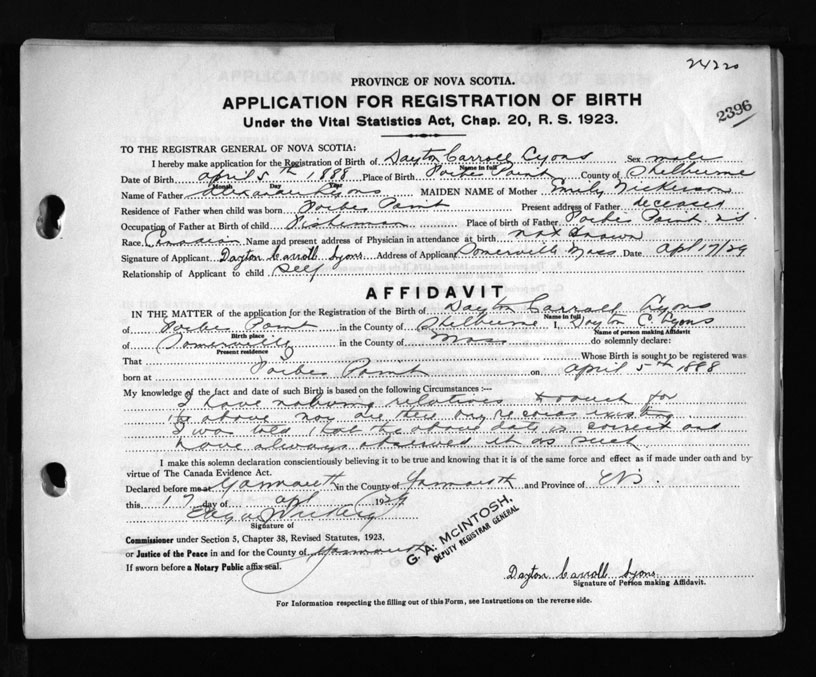 24220
PROVINCE OF NOVA SCOTIA.
APPLICATION FOR REGISTRATION OF BIRTH
2396
Under the Vital Statistics Act, Chap. 20, R. S. 1923.
TO THE REGISTRAR GENERAL OF NOVA SCOTIA:
I hereby make application for the Registration of Birth of Dayton Carroll Lyons Sex male
Name in full
Date of Birth April 5th 1888 Place of Birth Forbes Point County of Shelburne
Month Day Year
Name of Father Lyons MAIDEN NAME of Mother Emily Nickerson
Residence of Father when child was born Forbes Point Present address of Father deceased
Occupation of Father at Birth of child Fisherman Place of birth of Father Forbes Point N.S.
Race Canadian Name and present address of Physician in attendance at birth not known
Signature of Applicant Dayton Carroll Lyons Address of Applicant Somerville Mass Date Apl 17/29
Relationship of Applicant to child Self
AFFIDAVIT
IN THE MATTER of the application for the Registration of the Birth of Dayton Carroll Lyons
Name in full
of Forbes Point in the County of Shelburne I, Dayton C Lyons
Birth place Name of person making Affidavit
of Somerville in the County of Mass do solemnly declare:
Present residence
That Whose Birth is sought to be registered was
born at Forbes Point on April 5th 1888
My knowledge of the fact and date of such Birth is based on the following Circumstances :—
I have no living relatives to vouch for
above nor are there any records existing
I was told that the above date is correct and
have always observed it as such
I make this solemn declaration conscientiously believing it to be true and knowing that it is of the same force and effect as if made under oath and by
virtue of The Canada Evidence Act.
Declared before me at Yarmouth in the County of Yarmouth and Province of N.S.
this 17 day of apl 1929
Signature of
G. A. McINTOSH,
DEPUTY REGISTRAR GENERAL
Commissioner under Section 5, Chapter 38, Revised Statutes, 1923,
or Justice of the Peace in and for the County of Yarmouth
If sworn before a Notary Public affix seal.
Dayton Carroll Lyons
Signature of Person making Affidavit.
For Information respecting the filling out of this Form, see Instructions on the reverse side.